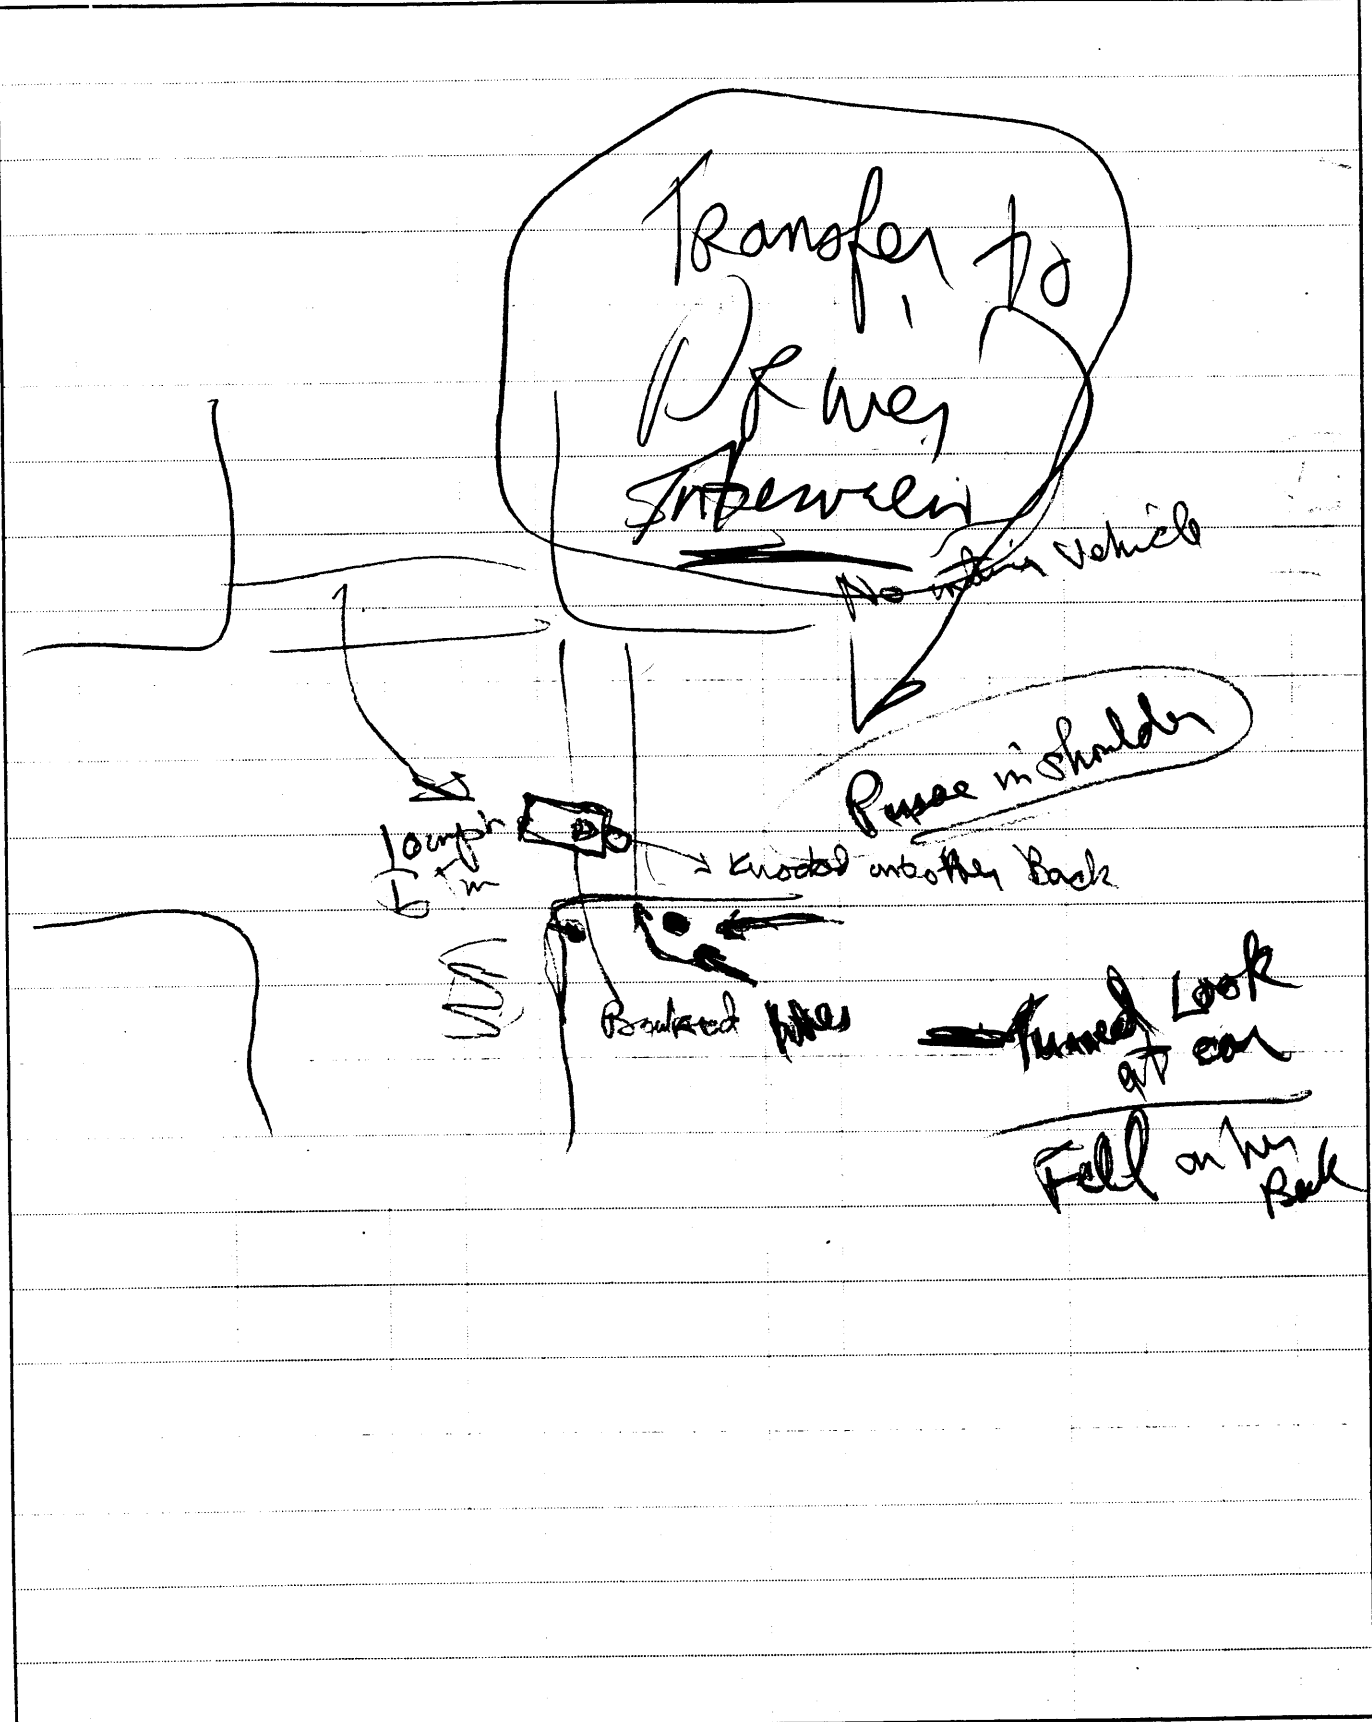 Transfer to
Driver
Interview
No vehicle
Purse in shoulder
10 mph
Knocked onto her Back
Look
at car
Fell on her
Back